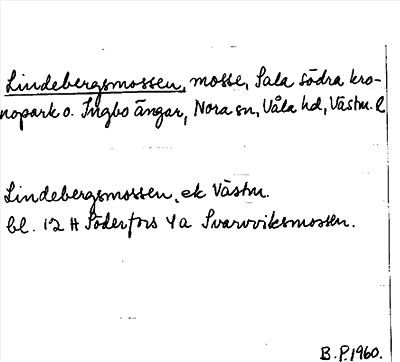 Lindebergsmossen, mosse, Sala södra kro-
nopark o. Ingbo ängar, Nora sn, Våla hd, Västm. l
Lindebergsmossen, ek Västm.
bl. 12 H Söderfors 4 a Svarvviksmossen.
B.P. 1960.